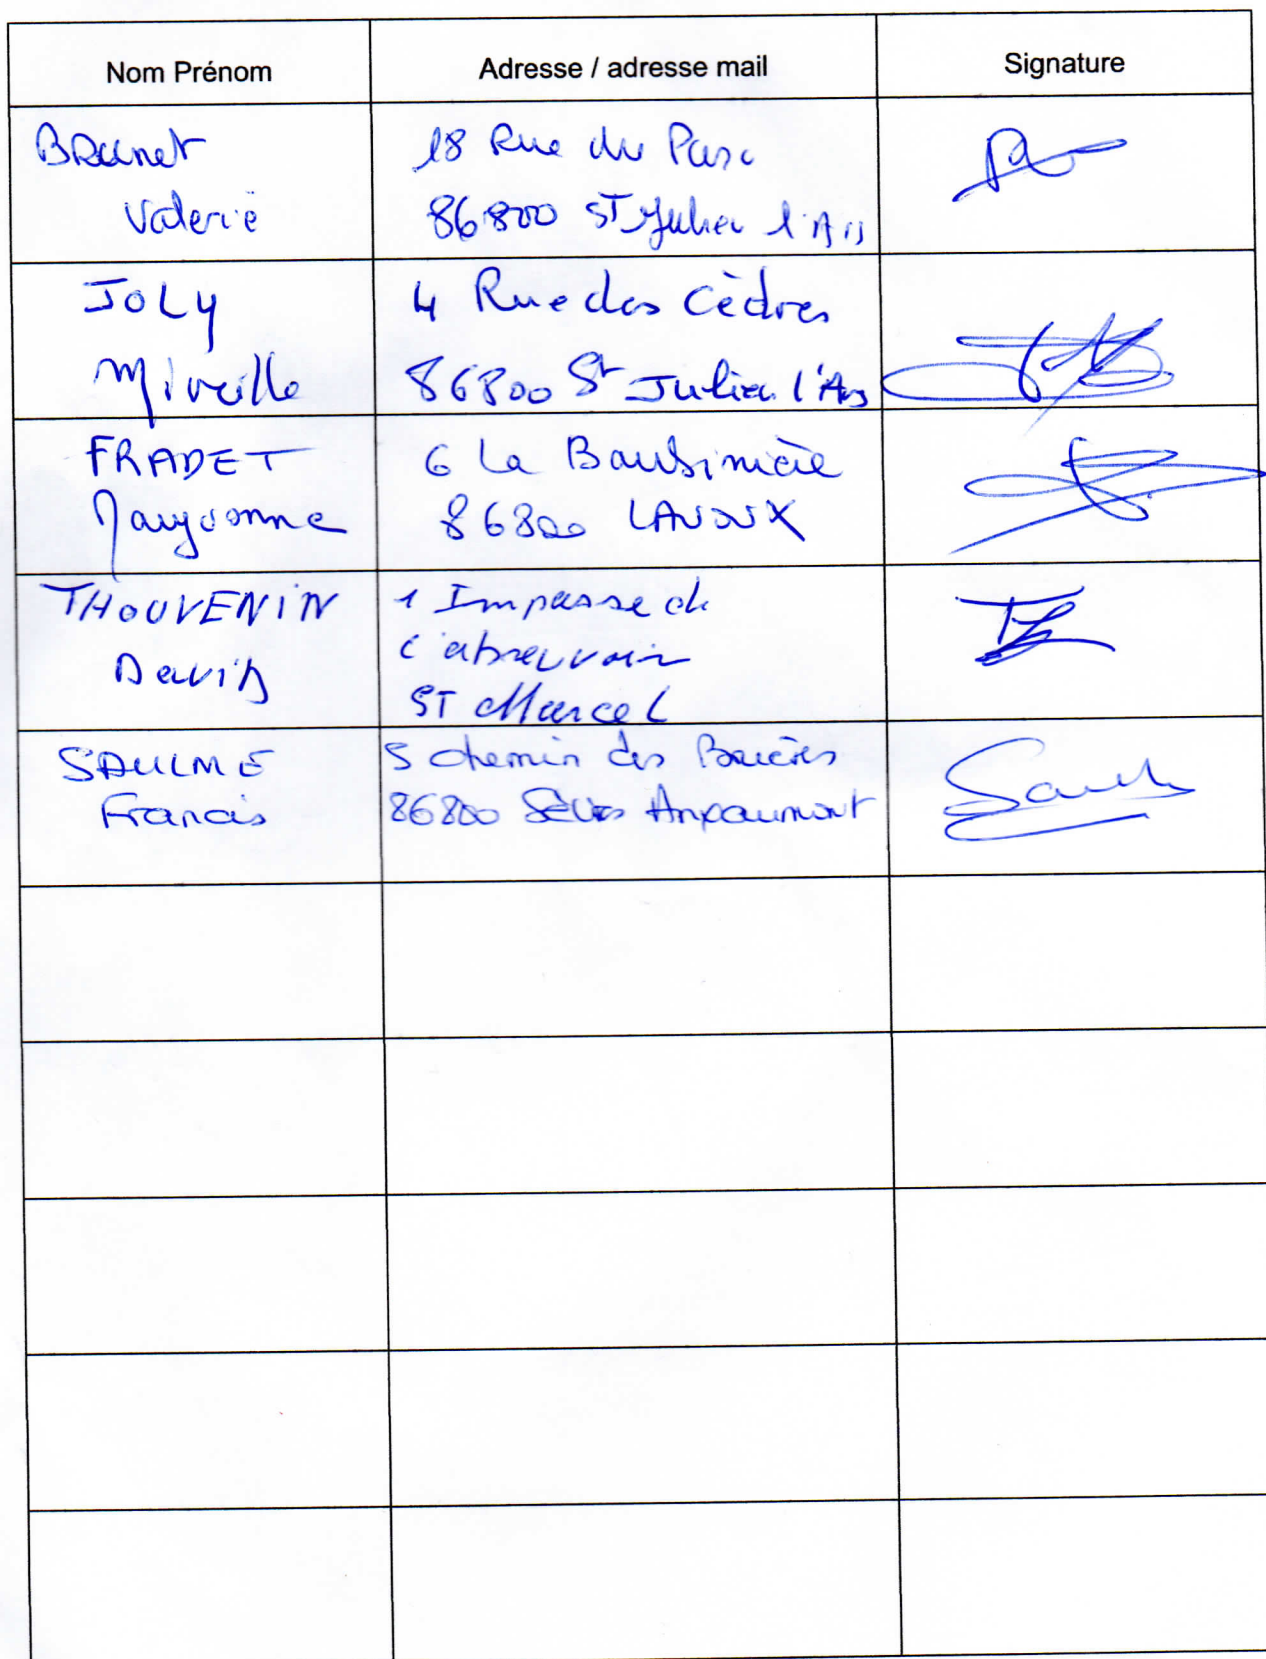 Nom Prénom
Adresse / adresse mail
Signature
BRunet
Valerie
18 Rue du Parc
86800 ST Julien l'Ars
JOLY
Mireille
4 Rue des Cèdres
86800 St Julien l'Ars
FRADET
Maryvonne
6 La Bausinière
86800 LAVOUX
THOUVENIN
David
1 Impasse de
l'abreuvoir
ST Marcel
SAULME
Francis
5 chemin des
86800 Sèvres Anxaumont